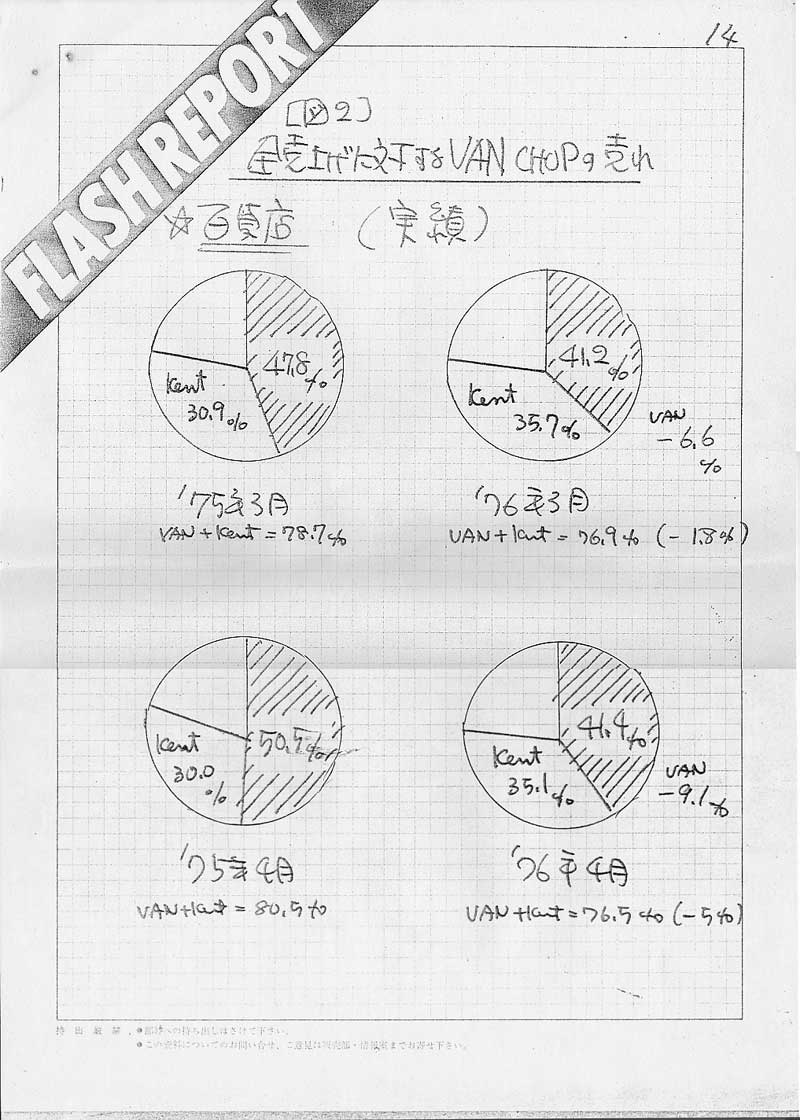 14
FLASH REPORT
[図2]
全売上げに対するVAN CHOPの売れ
☆百貨店 (実績)
47.8%
Kent
30.9%
'75年3月
VAN+Kent=78.7%
41.2%
Kent
35.7%
VAN
-6.6
%
'76年3月
VAN+Kent=76.9% (-1.8%)
50.5%
Kent
30.0
%
'75年4月
VAN+Kent=80.5%
41.4%
Kent
35.1%
VAN
-9.1%
'76年4月
VAN+Kent=76.5% (-5%)
持出厳禁 ●部外への持ち出しはさけて下さい。
●この資料についてのお問い合せ、ご意見は販売部・情報室までお寄せ下さい。